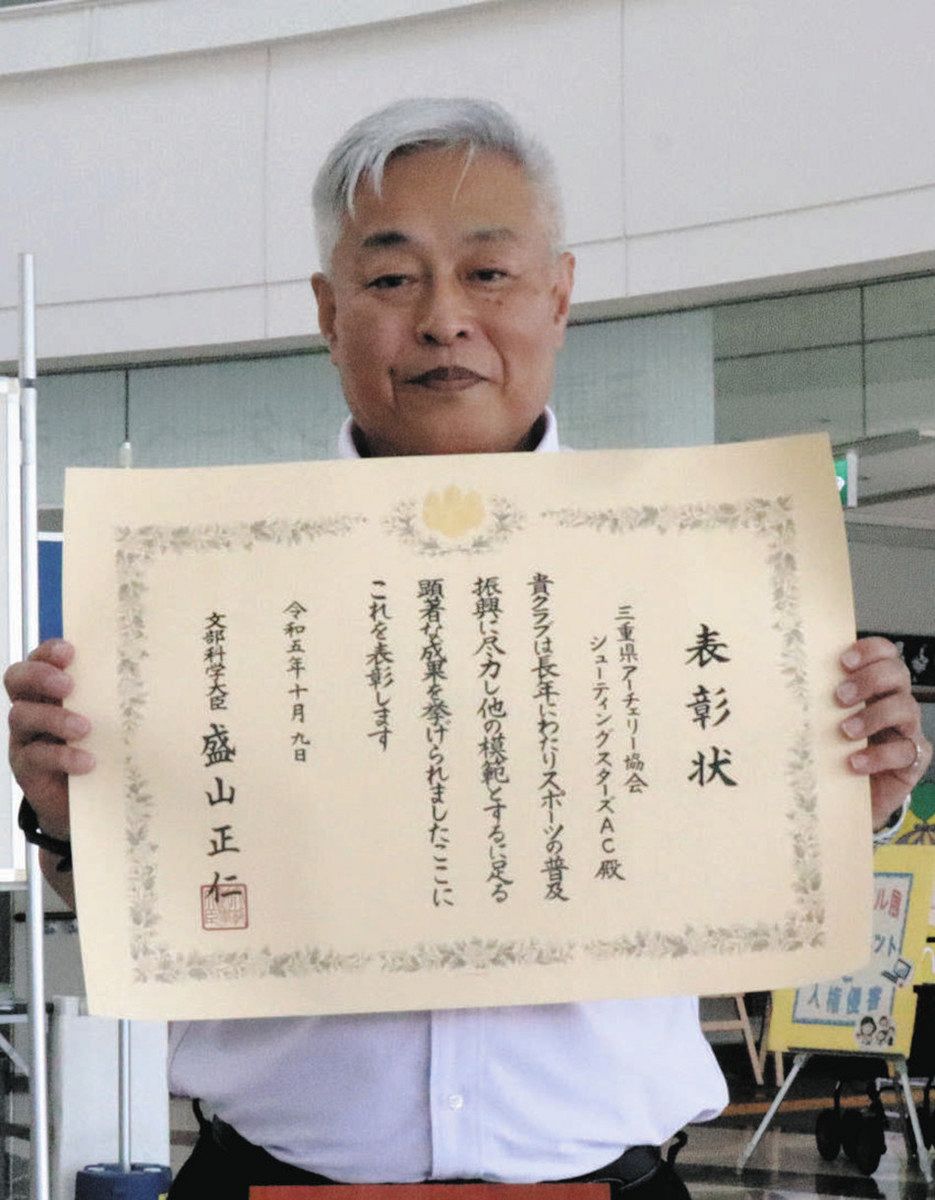 表彰状
三重県アーチェリー協会
シューティングスターズAC殿
貴クラブは長年にわたりスポーツの普及
振興に尽力し他の模範とするに足る
顕著な成果を挙げられましたここに
これを表彰します
令和五年十月九日
文部科学大臣 盛山正仁
ル展
ント
人権侵害